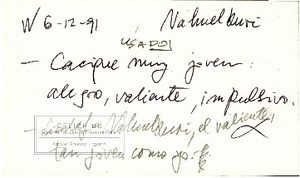 W 6-12-91 Nahuelkuri
USADO
- Cacique muy joven:
alegre, valiente, impulsivo.
- Nahuelkuri, el valiente,
tan joven como yo.